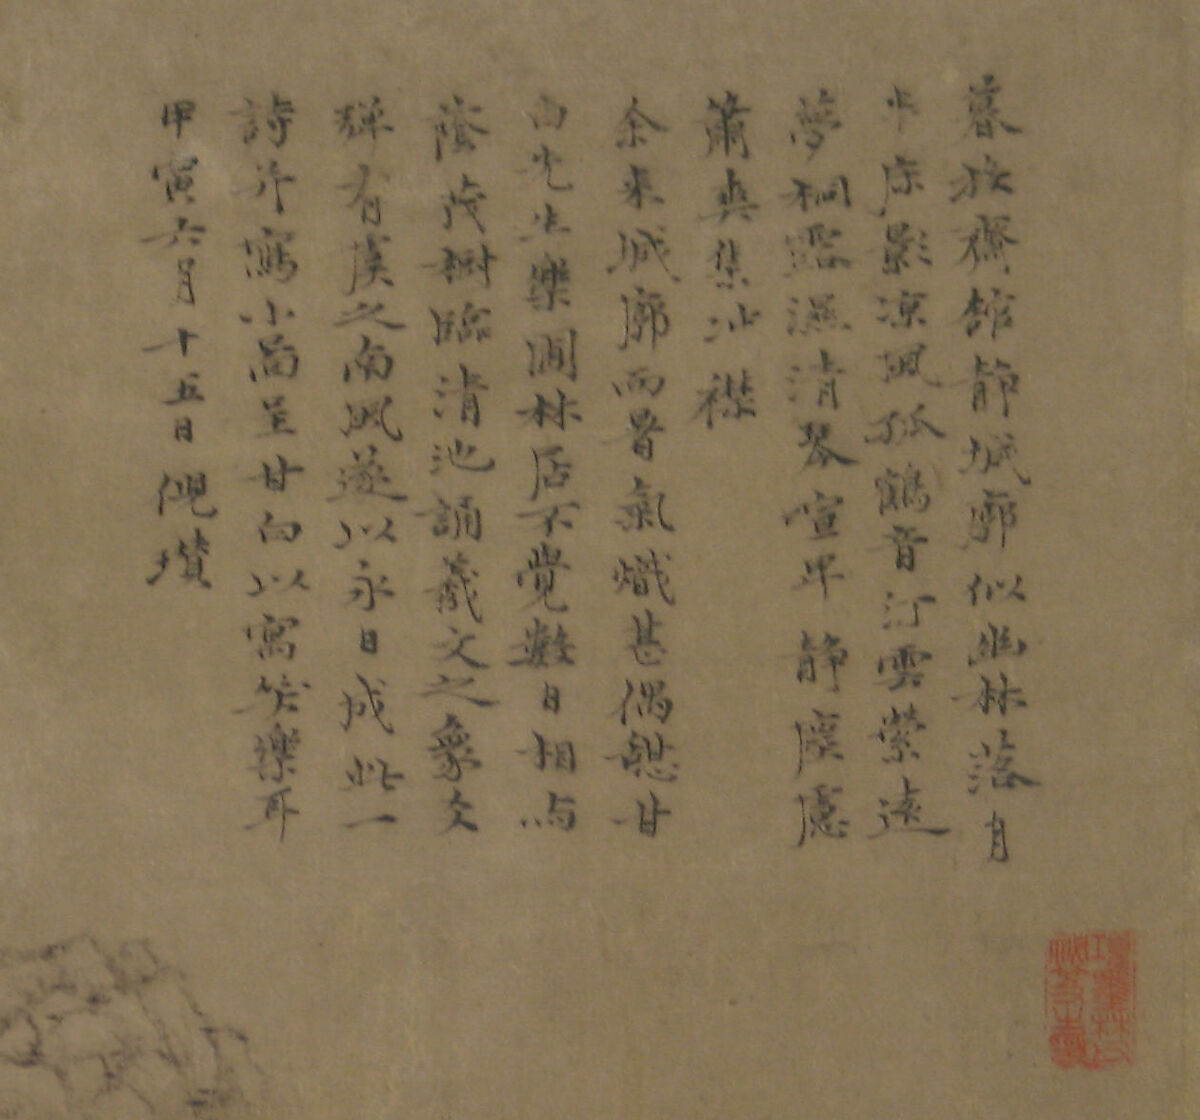 暮投齋館靜城郭似幽林落月
半床影涼風孤鶴音汀雲縈遠
夢桐露濕清琴喧卑靜處慮
蕭爽集沖襟
余來城郭而暑氣熾甚偶憩甘
白先生樂圃林居不覺數日相与
蔭茂樹臨清池誦羲文之象爻
彈有虞之南風遂以永日成此一
詩并寫小圖呈甘白以寓笑樂耳
甲寅六月十五日倪瓚
項墨林父
秘笈之印